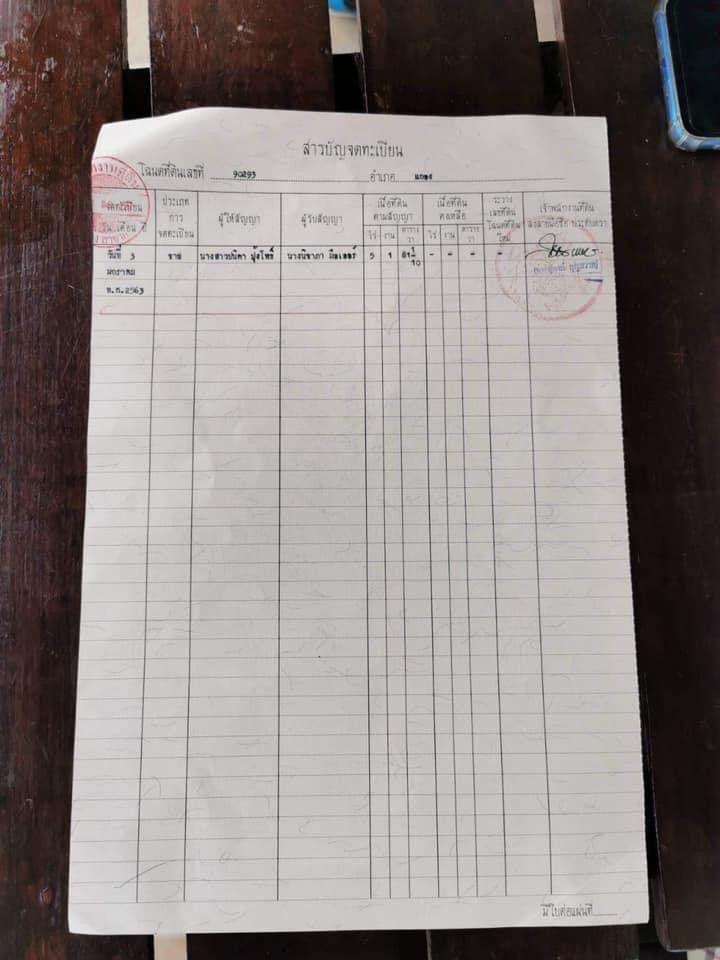 สารบัญจดทะเบียน
โฉนดที่ดินเลขที่ 90293 อำเภอ แกลง
จดทะเบียน วัน เดือน ปี
ประเภทการจดทะเบียน
ผู้ให้สัญญา
ผู้รับสัญญา
เนื้อที่ดินตามสัญญา
ไร่ งาน ตารางวา
เนื้อที่ดินคงเหลือ
ไร่ งาน ตารางวา
ระวาง เลขที่ดิน โฉนดที่ดินใหม่
เจ้าพนักงานที่ดิน ลงลายมือชื่อ ประทับตรา
วันที่ 3 ขาย นางสาวปนิดา นางนิชาภา 5 1 81 1/10 - - - -
มกราคม
พ.ศ.2563
มีใบต่อแผ่นที่